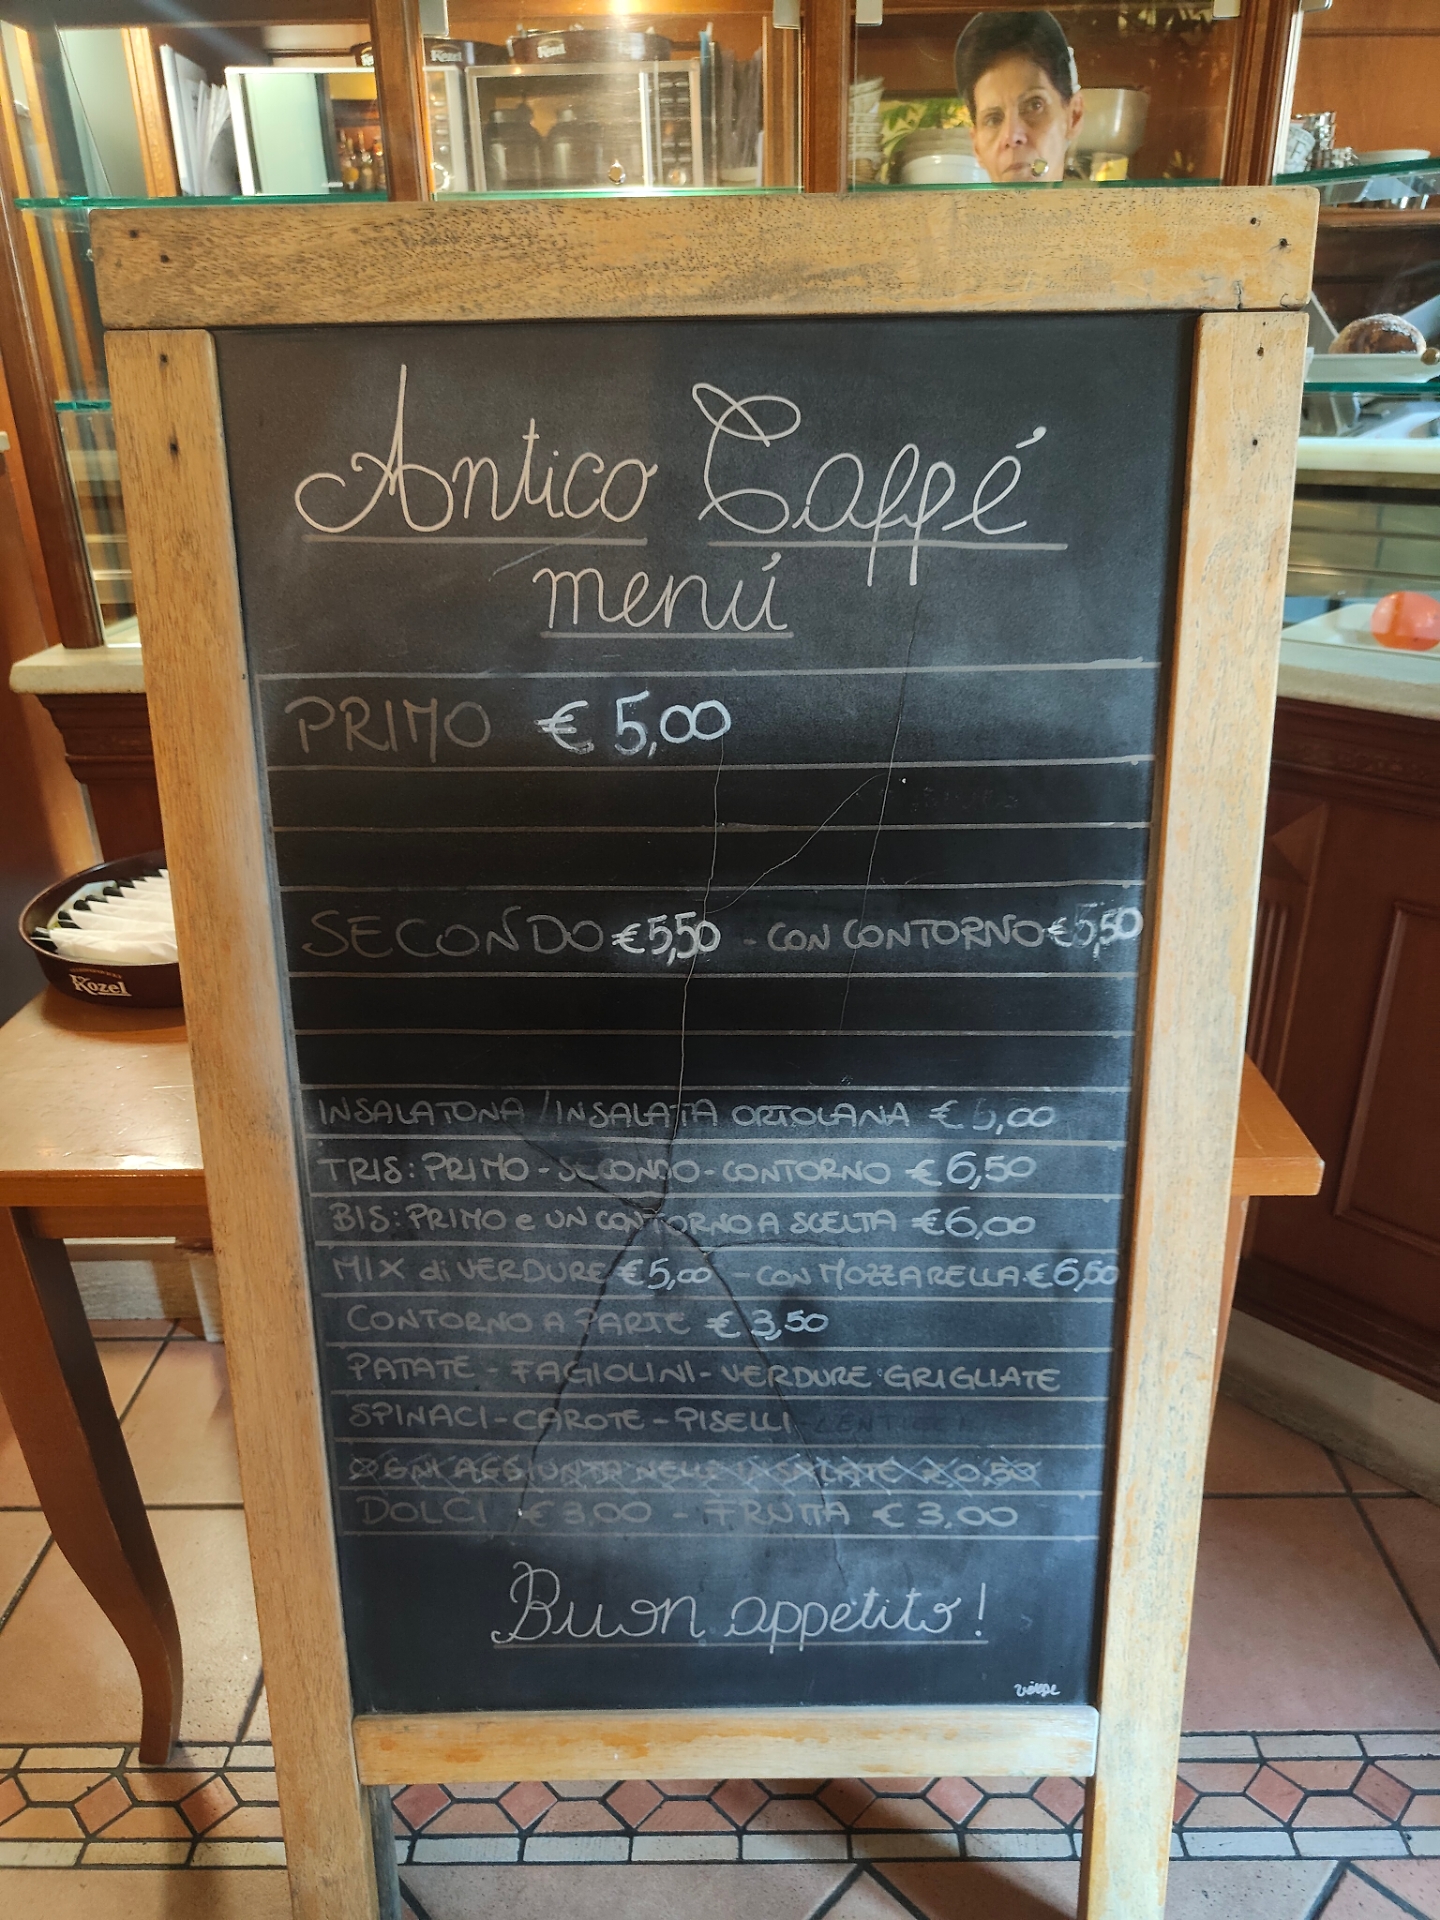 Kozel
Kozel
Antico Caffé
menú
PRIMO € 5,00
SECONDO € 5,50 - CON CONTORNO € 5,50
INSALATONA / INSALATA ORTOLANA € 5,00
TRIS: PRIMO - SECONDO - CONTORNO € 6,50
BIS: PRIMO e UN CONTORNO A SCELTA € 6,00
MIX di VERDURE € 5,00 - CON MOZZARELLA € 6,50
CONTORNO A PARTE € 3,50
PATATE - FAGIOLINI - VERDURE GRIGLIATE
SPINACI - CAROTE - PISELLI
OGNI AGGIUNTA NELLE INSALATE € 0,50
DOLCI € 3,00 - FRUTTA € 3,00
Buon appetito!
Kozel